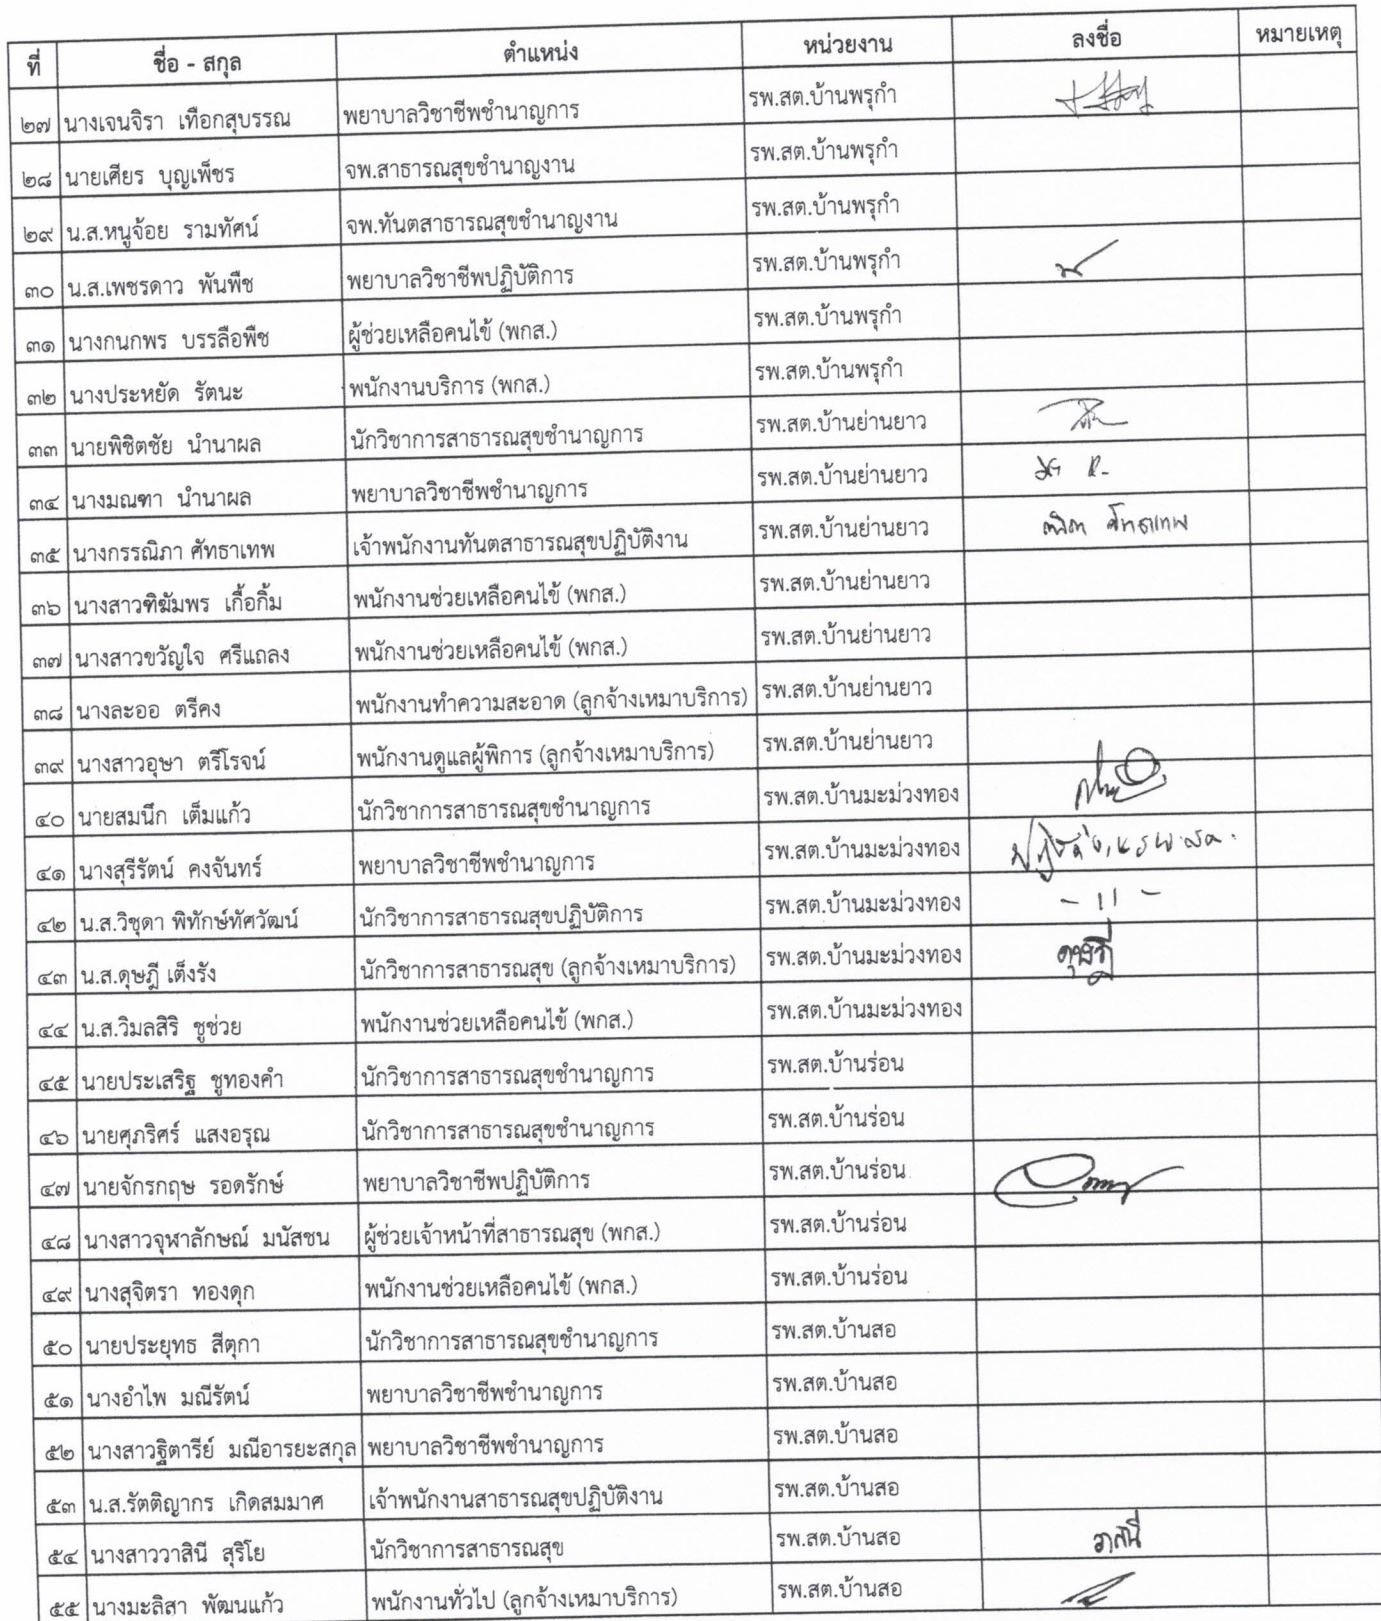 ที่ ชื่อ - สกุล ตำแหน่ง หน่วยงาน ลงชื่อ หมายเหตุ
๒๗ นางเจนจิรา เทือกสุบรรณ พยาบาลวิชาชีพชำนาญการ รพ.สต.บ้านพรุกำ
๒๘ นายเศียร บุญเพ็ชร จพ.สาธารณสุขชำนาญงาน รพ.สต.บ้านพรุกำ
๒๙ น.ส.หนูจ้อย รามทัศน์ จพ.ทันตสาธารณสุขชำนาญงาน รพ.สต.บ้านพรุกำ
๓๐ น.ส.เพชรดาว พันพืช พยาบาลวิชาชีพปฏิบัติการ รพ.สต.บ้านพรุกำ
๓๑ นางกนกพร บรรลือพืช ผู้ช่วยเหลือคนไข้ (พกส.) รพ.สต.บ้านพรุกำ
๓๒ นางประหยัด รัตนะ พนักงานบริการ (พกส.) รพ.สต.บ้านพรุกำ
๓๓ นายพิชิตชัย นำนาผล นักวิชาการสาธารณสุขชำนาญการ รพ.สต.บ้านย่านยาว
๓๔ นางมณฑา นำนาผล พยาบาลวิชาชีพชำนาญการ รพ.สต.บ้านย่านยาว
๓๕ นางกรรณิภา ศัทธาเทพ เจ้าพนักงานทันตสาธารณสุขปฏิบัติงาน รพ.สต.บ้านย่านยาว
๓๖ นางสาวฑิฆัมพร เกื้อกิ้ม พนักงานช่วยเหลือคนไข้ (พกส.) รพ.สต.บ้านย่านยาว
๓๗ นางสาวขวัญใจ ศรีแถลง พนักงานช่วยเหลือคนไข้ (พกส.) รพ.สต.บ้านย่านยาว
๓๘ นางละออ ตรีคง พนักงานทำความสะอาด (ลูกจ้างเหมาบริการ) รพ.สต.บ้านย่านยาว
๓๙ นางสาวอุษา ตรีโรจน์ พนักงานดูแลผู้พิการ (ลูกจ้างเหมาบริการ) รพ.สต.บ้านย่านยาว
๔๐ นายสมนึก เต็มแก้ว นักวิชาการสาธารณสุขชำนาญการ รพ.สต.บ้านมะม่วงทอง
๔๑ นางสุรีรัตน์ คงจันทร์ พยาบาลวิชาชีพชำนาญการ รพ.สต.บ้านมะม่วงทอง
๔๒ น.ส.วิชุดา พิทักษ์ทัศวัฒน์ นักวิชาการสาธารณสุขปฏิบัติการ รพ.สต.บ้านมะม่วงทอง - 11 -
๔๓ น.ส.ดุษฎี เต็งรัง นักวิชาการสาธารณสุข (ลูกจ้างเหมาบริการ) รพ.สต.บ้านมะม่วงทอง ดุษฎี
๔๔ น.ส.วิมลสิริ ชูช่วย พนักงานช่วยเหลือคนไข้ (พกส.) รพ.สต.บ้านมะม่วงทอง
๔๕ นายประเสริฐ ชูทองคำ นักวิชาการสาธารณสุขชำนาญการ รพ.สต.บ้านร่อน
๔๖ นายศุภริศร์ แสงอรุณ นักวิชาการสาธารณสุขชำนาญการ รพ.สต.บ้านร่อน
๔๗ นายจักรกฤษ รอดรักษ์ พยาบาลวิชาชีพปฏิบัติการ รพ.สต.บ้านร่อน
๔๘ นางสาวจุฬาลักษณ์ มนัสชน ผู้ช่วยเจ้าหน้าที่สาธารณสุข (พกส.) รพ.สต.บ้านร่อน
๔๙ นางสุจิตรา ทองดุก พนักงานช่วยเหลือคนไข้ (พกส.) รพ.สต.บ้านร่อน
๕๐ นายประยุทธ สีตุกา นักวิชาการสาธารณสุขชำนาญการ รพ.สต.บ้านสอ
๕๑ นางอำไพ มณีรัตน์ พยาบาลวิชาชีพชำนาญการ รพ.สต.บ้านสอ
๕๒ นางสาวฐิตารีย์ มณีอารยะสกุล พยาบาลวิชาชีพชำนาญการ รพ.สต.บ้านสอ
๕๓ น.ส.รัตติญากร เกิดสมมาศ เจ้าพนักงานสาธารณสุขปฏิบัติงาน รพ.สต.บ้านสอ
๕๔ นางสาววาสินี สุริโย นักวิชาการสาธารณสุข รพ.สต.บ้านสอ วาสินี
๕๕ นางมะลิสา พัฒนแก้ว พนักงานทั่วไป (ลูกจ้างเหมาบริการ) รพ.สต.บ้านสอ